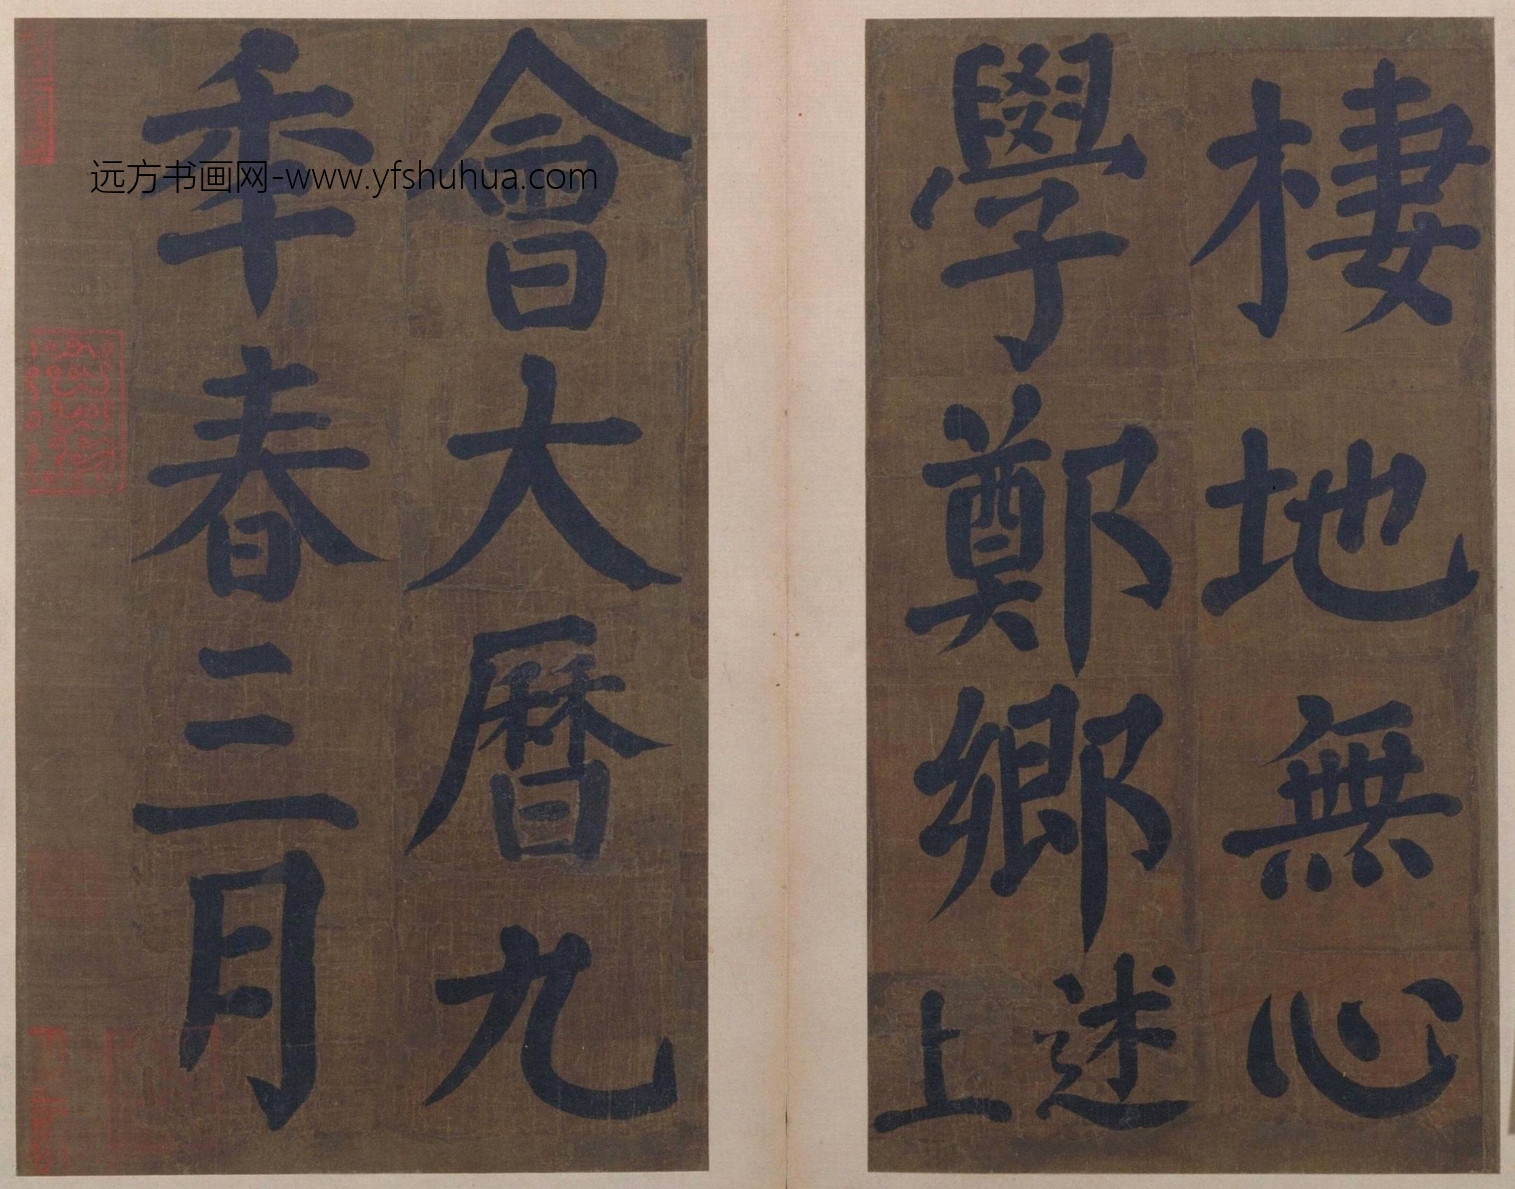 棲地無心
學鄭鄉述上
會大曆九
年春三月
远方书画网-www.yfshuhua.com